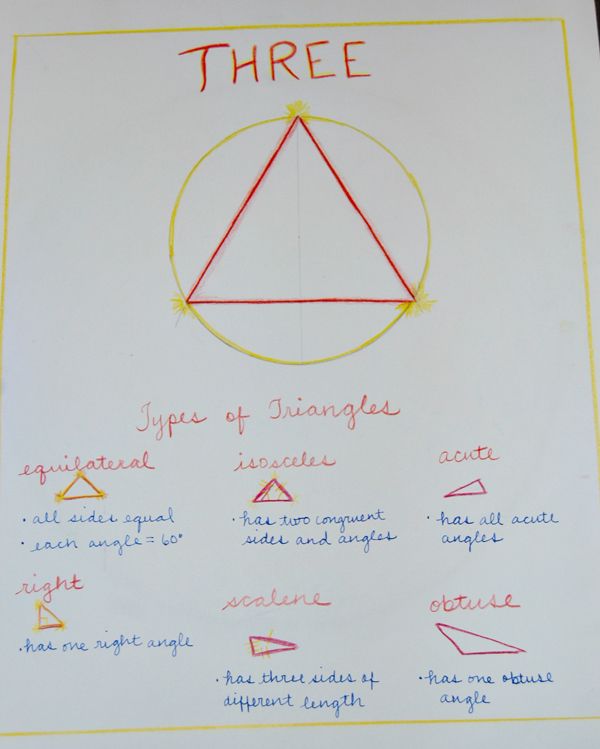 THREE
Types of Triangles
equilateral
· all sides equal
· each angle = 60°
isosceles
· has two congruent
sides and angles
acute
· has all acute
angles
right
· has one right angle
scalene
· has three sides of
different length
obtuse
· has one obtuse
angle